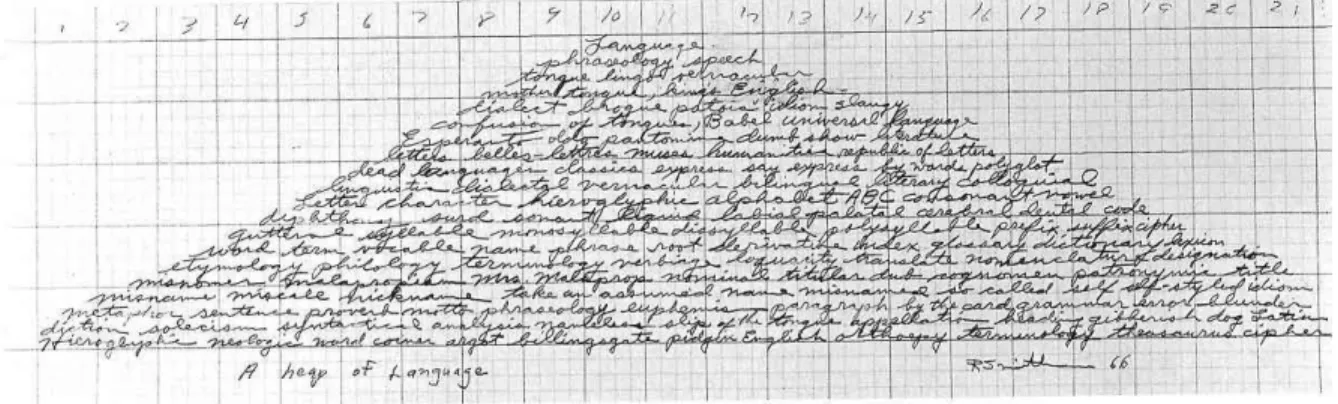 1 2 3 4 5 6 7 8 9 10 11 12 13 14 15 16 17 18 19 20 21
Language
phraseology speech
tongue lingo vernacular
mother tongue, king's English
dialect brogue patois idiom slangy
confusion of tongues, Babel universal language
Esperanto dog pantomime dumb show literature
letters belles-lettres muses humanities republic of letters
dead languages classics express say express by words polyglot
linguistic dialectal vernacular bilingual literary colloquial
Letter character hieroglyphic alphabet ABC consonant vowel
diphthong surd sonant liquid labial palatal cerebral dental code
guttural syllable monosyllable dissyllable polysyllable prefix suffix cipher
word term vocable name phrase root derivative index glossary dictionary lexicon
etymology philology terminology verbiage loquacity translate nomenclature designation
misnomer malapropism Mrs Malaprop nominal titular dub cognomen patronymic title
misname miscall nickname take an assumed name misnamed so called self self-styled idiom
metaphor sentence proverb motto phraseology euphemism paragraph by the card grammar error blunder
diction solecism syntactical analysis nameless slip of the tongue appellation heading gibberish dog Latin
Hieroglyphic neologic word coiner argot billingsgate pidgin English orthoepy terminology thesaurus cipher
A heap of Language
R Smith 66